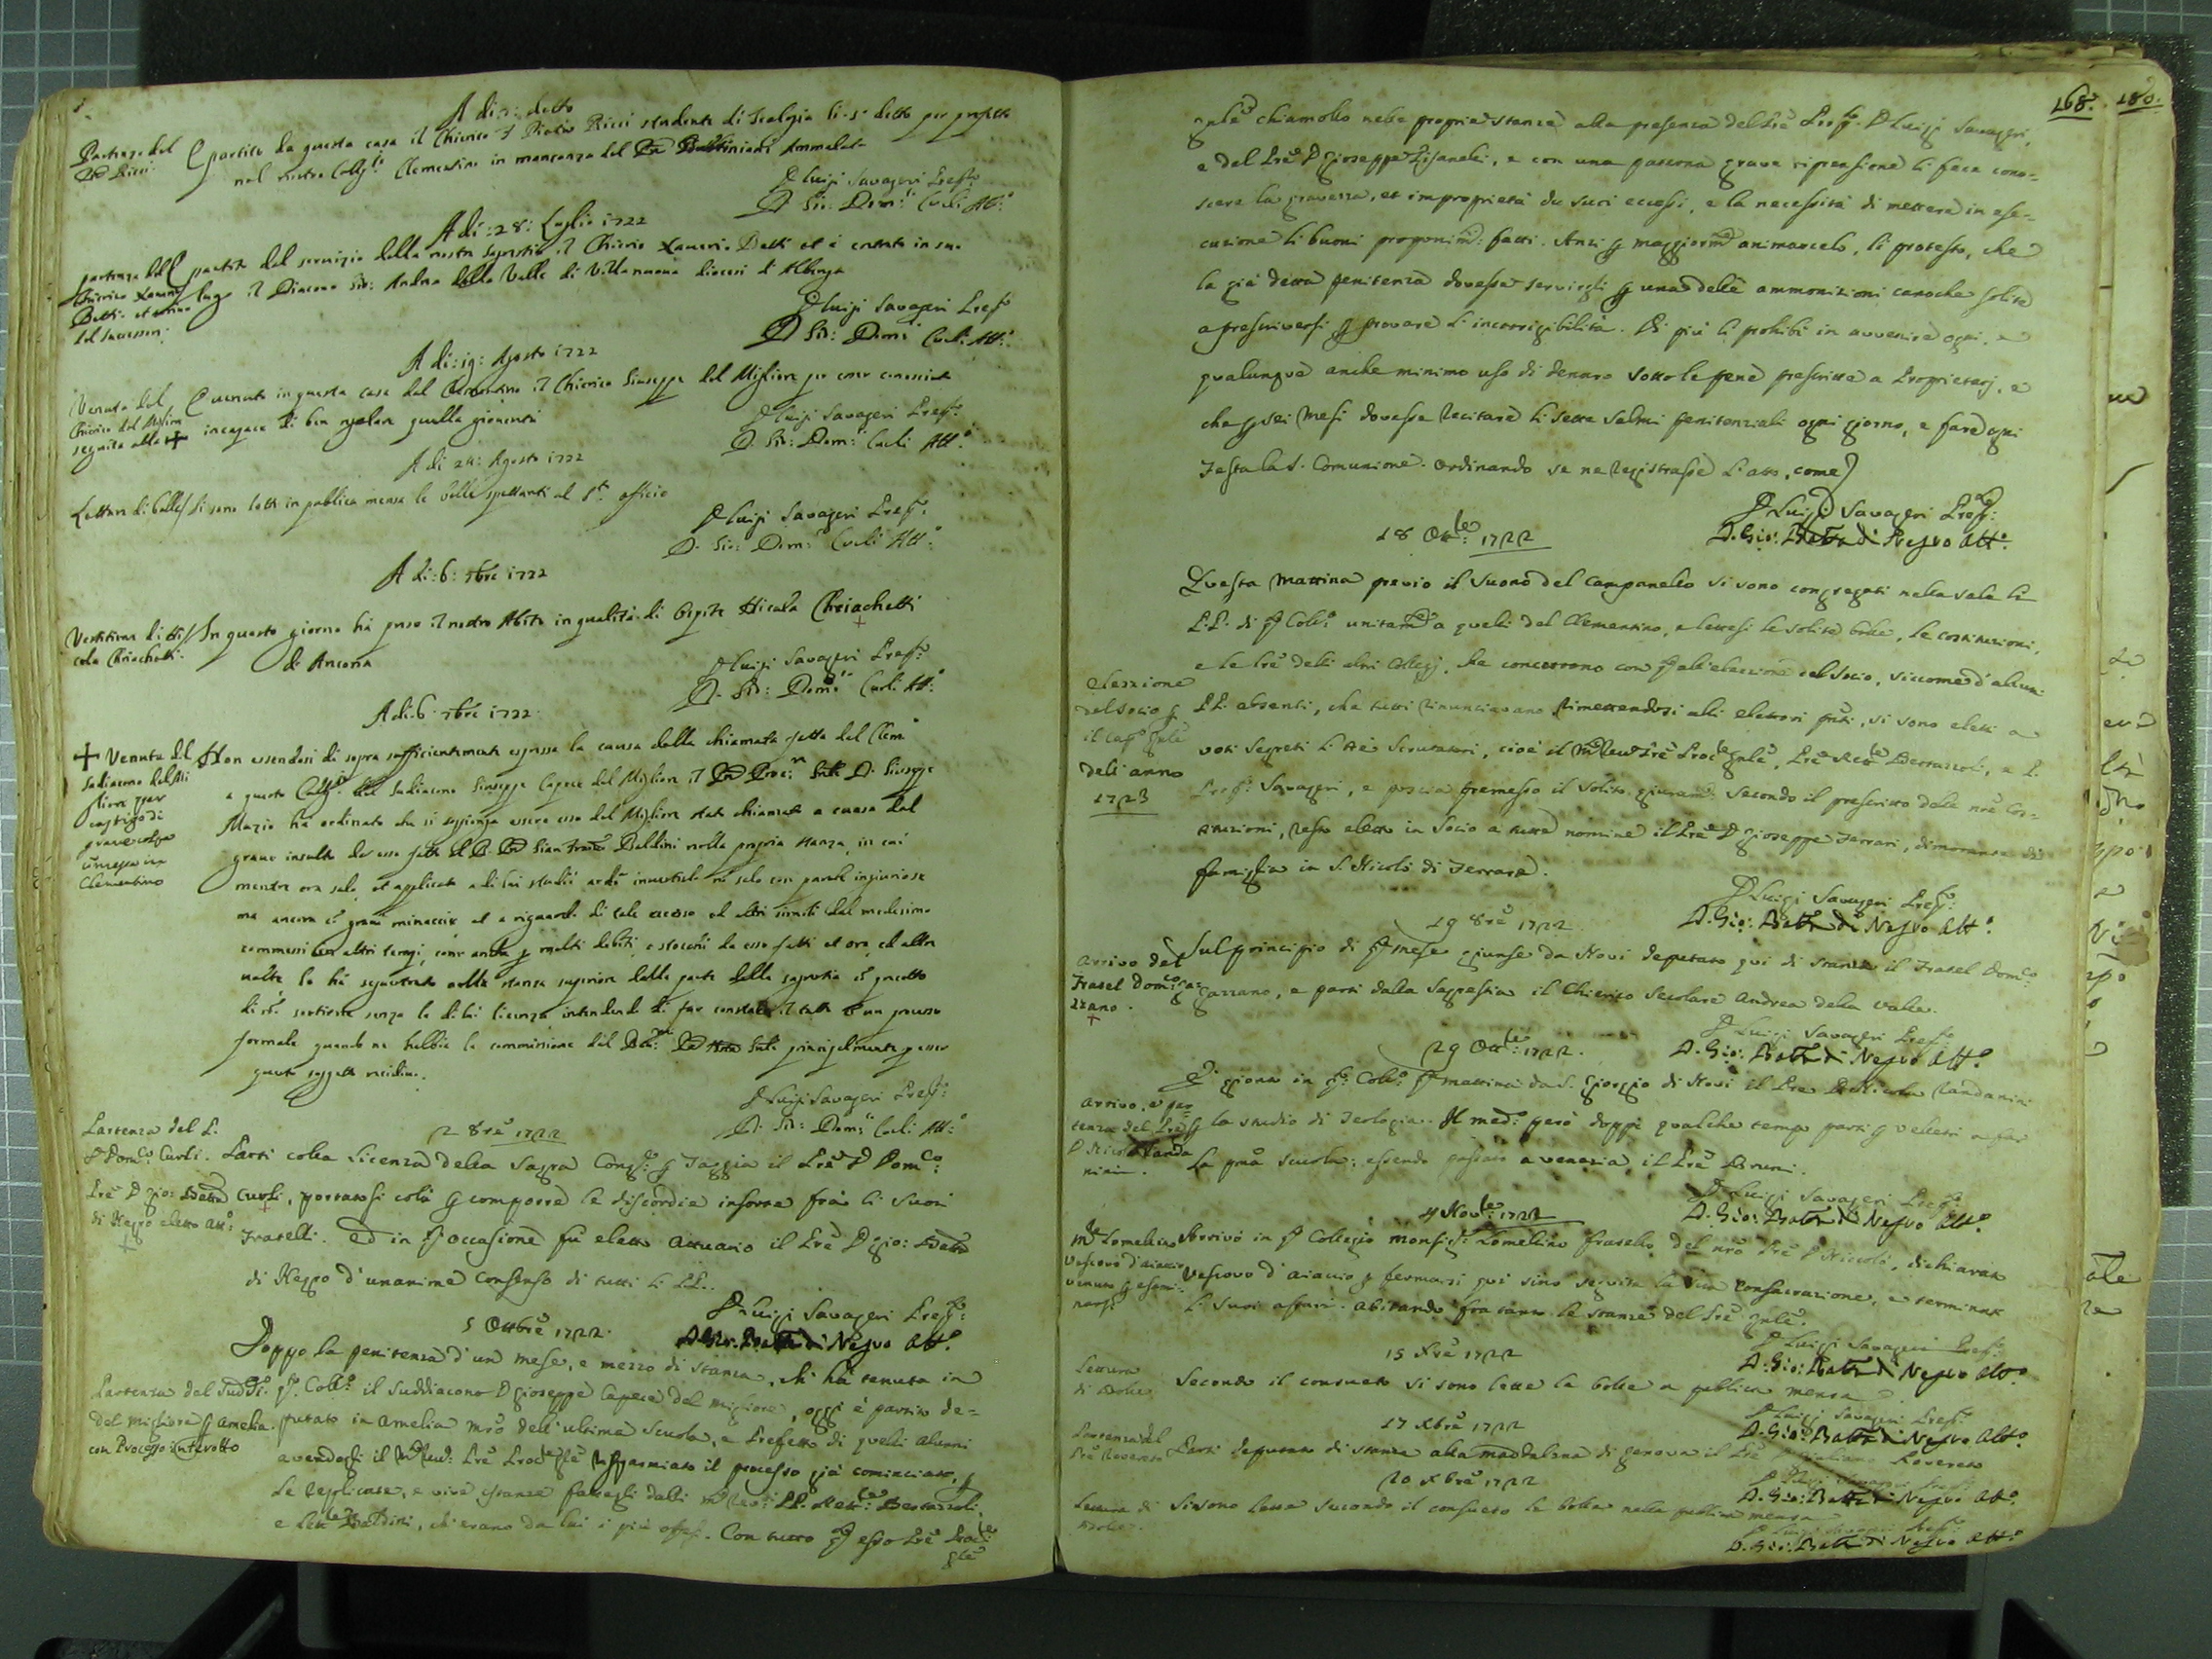 A di 5: detto
Partenza del
Pre Ricci
È partito da questa casa il Chierico D Pietro Ricci studente di Teologia li 5 detto per prefetto
nel nostro Collo Clementino in mancanza del Pre Baltiniani Ammalato
D Luigi Savageri Prepto
D. Gio: Domco Curli Atto:
A di: 28: Luglio 1722
partenza del
Chierico Xaverio
Betti et
del successor:
È partito dal servizio della nostra sagrestia il Chierico Xaverio Betti et è entrato in suo
lugo il Diacono Gio: Andrea della Valle di Villanuova diocesi d'Albenga
D Luigi Savageri Prepto
D Gio: Domco Curli Atto:
A di: 19: Agosto 1722
Venuta del
Chierico del Migliore
seguita alla +
È venuto in questa casa dal Clementino il Chierico Giuseppe del Migliore per esser conosciuto
incapace di ben regolare quella gioventù
D Luigi Savageri Prepto:
D. Gio: Domco: Curli Atto:
A di 24: Agosto 1722
Lettura di bolle
Si sono lette in publica mensa le bolle spettanti al Sto officio
D Luigi Savageri Prepto:
D. Gio: Domco Curli Atto:
A di: 6: 7bre 1722
Vestitione di Ni
cola Chriachetti:
In questo giorno hà preso il nostro Abito in qualità di Ospite Nicola Chriachetti
di Ancona
D Luigi Savageri Prepto:
D. Gio: Domco Curli Atto:
A di 6 7bre 1722
+ Venuta del
Sudiacono del Mi
gliore per
castigo di
grave colpa
commessa in
Clementino
Non essendosi di sopra sufficientemente espressa la causa della chiamata fatta dal Clemo
a questo Collo del Sudiacono Giuseppe Capece del Migliore il Pre Proc: Gnle D. Giuseppe
Mazio ha ordinato che si soggionga essere esso del Migliore stato chiamato a causa del
grave insulto da esso fatto al P. Pre Gian Franco Baldini nella propria stanza, in cui
mentre era solo, et applicato a di lui studii ardì investirlo nò solo con parole ingiuriose
ma ancora cō gravi minaccie et a riguardo di tale eccesso ed altri simili dal medesimo
commessi in altri tempi, come anche p molti debiti, e stocchi da esso fatti et ora, ed altre
volte lo hà sequestrato nella stanza superiore dalla parte della sagrestia cō precetto
di nō sortirne senza la di lui licenza intendendo di far constare il tutto cō un processo
formale quando ne habbia la commissione dal Rmo: Pre Gnle principalmente p esser
questo soggetto recidivo.
D Luigi Savageri Prepto:
D. Gio: Domco: Curli Atto:
2 8bre 1722
Partenza del P.
D Domco: Curli.
Pre D gio: Batta
di Negro eletto Atto:
Partì colla licenza della Sagra Congne: p Foggia il Pre D Domco:
Curli, portatosi colà p comporre le discordie insorte frà li suoi
Fratelli. Ed in qta occasione fu eletto Attuario il Pre D gio: Batta
di Negro d'unanime consenso di tutti li PP.
D Luigi Savageri Prepto:
D. Gio: Batta di Negro Atto.
5 Ottbre 1722.
Partenza del Suddo:
del migliore p Amelia.
con Processo interotto
Doppo la penitenza d'un mese, e mezzo di stanza, ch'hà tenuta in
qto. Collo: il Suddiacono D Gioseppe Capece del migliore, oggi è partito de-
putato in Amelia mro dell'ultima scuola, e Prefetto di quelli alunni
avendogli il M Rev: Pre Procle gnle risparmiato il processo già cominciato, p
le replicate, e vive istanze fattegli dalli mto Revdi: PP. Rettle Bertazzoli,
e Lettle Baldini, ch'erano da lui i più offesi. Con tutto qto esso Pre Procle:
gnle
168. 180.
gnle chiamollo nelle proprie stanze alla presenza del Pre Prepto. D Luigi Savageri,
e del Pre D Gioseppe Pisanelli, e con una paterna grave riprensione li fece cono-
scere la gravezza, et improprietà de suoi eccessi, e la necessità di mettere in ese-
cuzione li buoni proponimti: fatti. Anzi p maggiormte animarcelo, li protestò, che
la già detta penitenza dovesse servirgli p una delle ammonizioni canoche solite
a prescriversi p provare l'incorrigibilità. Di più li prohibì in avvenire ogni, e
qualunque anche minimo uso di denaro sotto le pene prescritte a Proprietarj, e
che p sei mesi dovesse recitare li sette salmi penitenziali ogni giorno, e fare ogni
Festa la S. Comunione. Ordinando se ne registrasse l'atto, come
D Luigi Savageri Prepto:
D. Gio: Batta di Negro Atto.
18 Ottle: 1722
elezzione
del socio p
il Capo Gnle
dell'anno
1723
Questa mattina previo il suono del Campanello si sono congregati nella sala li
P.P. di qto Collo: unitamte a quelli del Clementino, e lettesi le solite bolle, le costituzioni,
e le lre delli altri Collegj, che concorrono con qto all'elezzione del socio, siccome d'alcuni
PP. absenti, che tutti rinunciavano rimettendosi alli elettori pnti, si sono eletti a
voti segreti li tre Scrutatori, cioè il M Rev Pre Procle gnle, Pre Rettle Bertazzoli, e P.
Prepto: Savageri, e poscia premesso il solito giuramto: secondo il prescritto delle nre Cos-
tituzioni, restò eletto in Socio a tutte nomine il Pre D Gioseppe Ferrari, dimorante di
famiglia in S. Nicolò di Ferrara.
D Luigi Savageri Prepto:
D. Gio: Batta di Negro Atto.
19 8bre 1722
Arrivo del
Fratel Domco Ga-
zzano.
Sul principio di qto mese giunse da Novi deputato qui di stanza il Fratel Domco
Gazzano, e partì dalla Sagrestia il Chierico Secolare Andrea della Valle.
D Luigi Savageri Prepto
D. Gio: Batta di Negro Atto.
29 Ottle: 1722.
Arrivo, e par-
tenza del Pre
D Nicola Landa
nini.
È gionto in qto: Collo: qta mattina da S. Giorgio di Novi il Pre D Nicola Landanini
p lo studio di Teologia. Il medo: però doppo qualche tempo partì p Velletri a far
la pma scuola; essendo passato a Venezia il Pre Bruni.
D Luigi Savageri Prepto
D. Gio: Batta di Negro Atto.
4 Novle: 1722
Mr Lomellino
Vescovo d'Aiaccio
venuto p esami-
narsi
Arrivò in qto Collegio Monsigr: Lomellino fratello del nro Pre D Niccolò, dichiarato
Vescovo d'Aiaccio p fermarsi qui sino seguita la sua consacrazione, e terminati
li suoi affari. abitando fra tanto le stanze del Pre Gnle.
D Luigi Savageri Prepto:
D. Gio: Batta di Negro Atto.
15 Xbre 1722
Lettura
di Bolle
Secondo il consueto si sono lette le bolle a publica mensa
D Luigi Savageri Prepto:
D. Gio: Batta di Negro Atto.
17 Xbre 1722
Partenza del
Pre Rovereto
Partì deputato di stanza alla Maddalena di Genova il Pre Rovereto
D Luigi Savageri Prepto
D. Gio: Batta di Negro Atto.
20 Xbre 1722
Lettura di
Bolle.
Si sono lette secondo il consueto le bolle nella publica mensa
D Luigi Savageri Prepto:
D. Gio: Batta di Negro Atto.